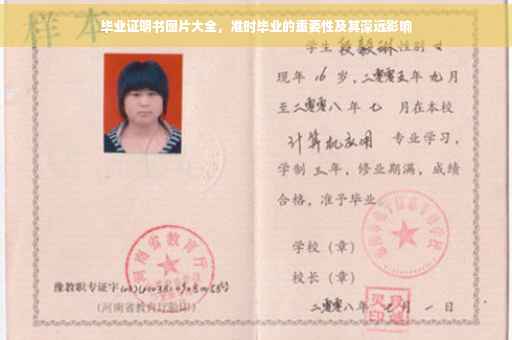 毕业证明书图片大全，准时毕业的重要性及其深远影响
样本
学生段毅琳性别女
现年16岁，二零零五年九月
至二零零八年七月在本校
计算机应用 专业学习，
学制三年，修业期满，成绩
合格，准予毕业。
学校（章）
校长（章）
二零零八年七月一日
河南省教育厅
豫教职专证字
（河南省教育厅验印）